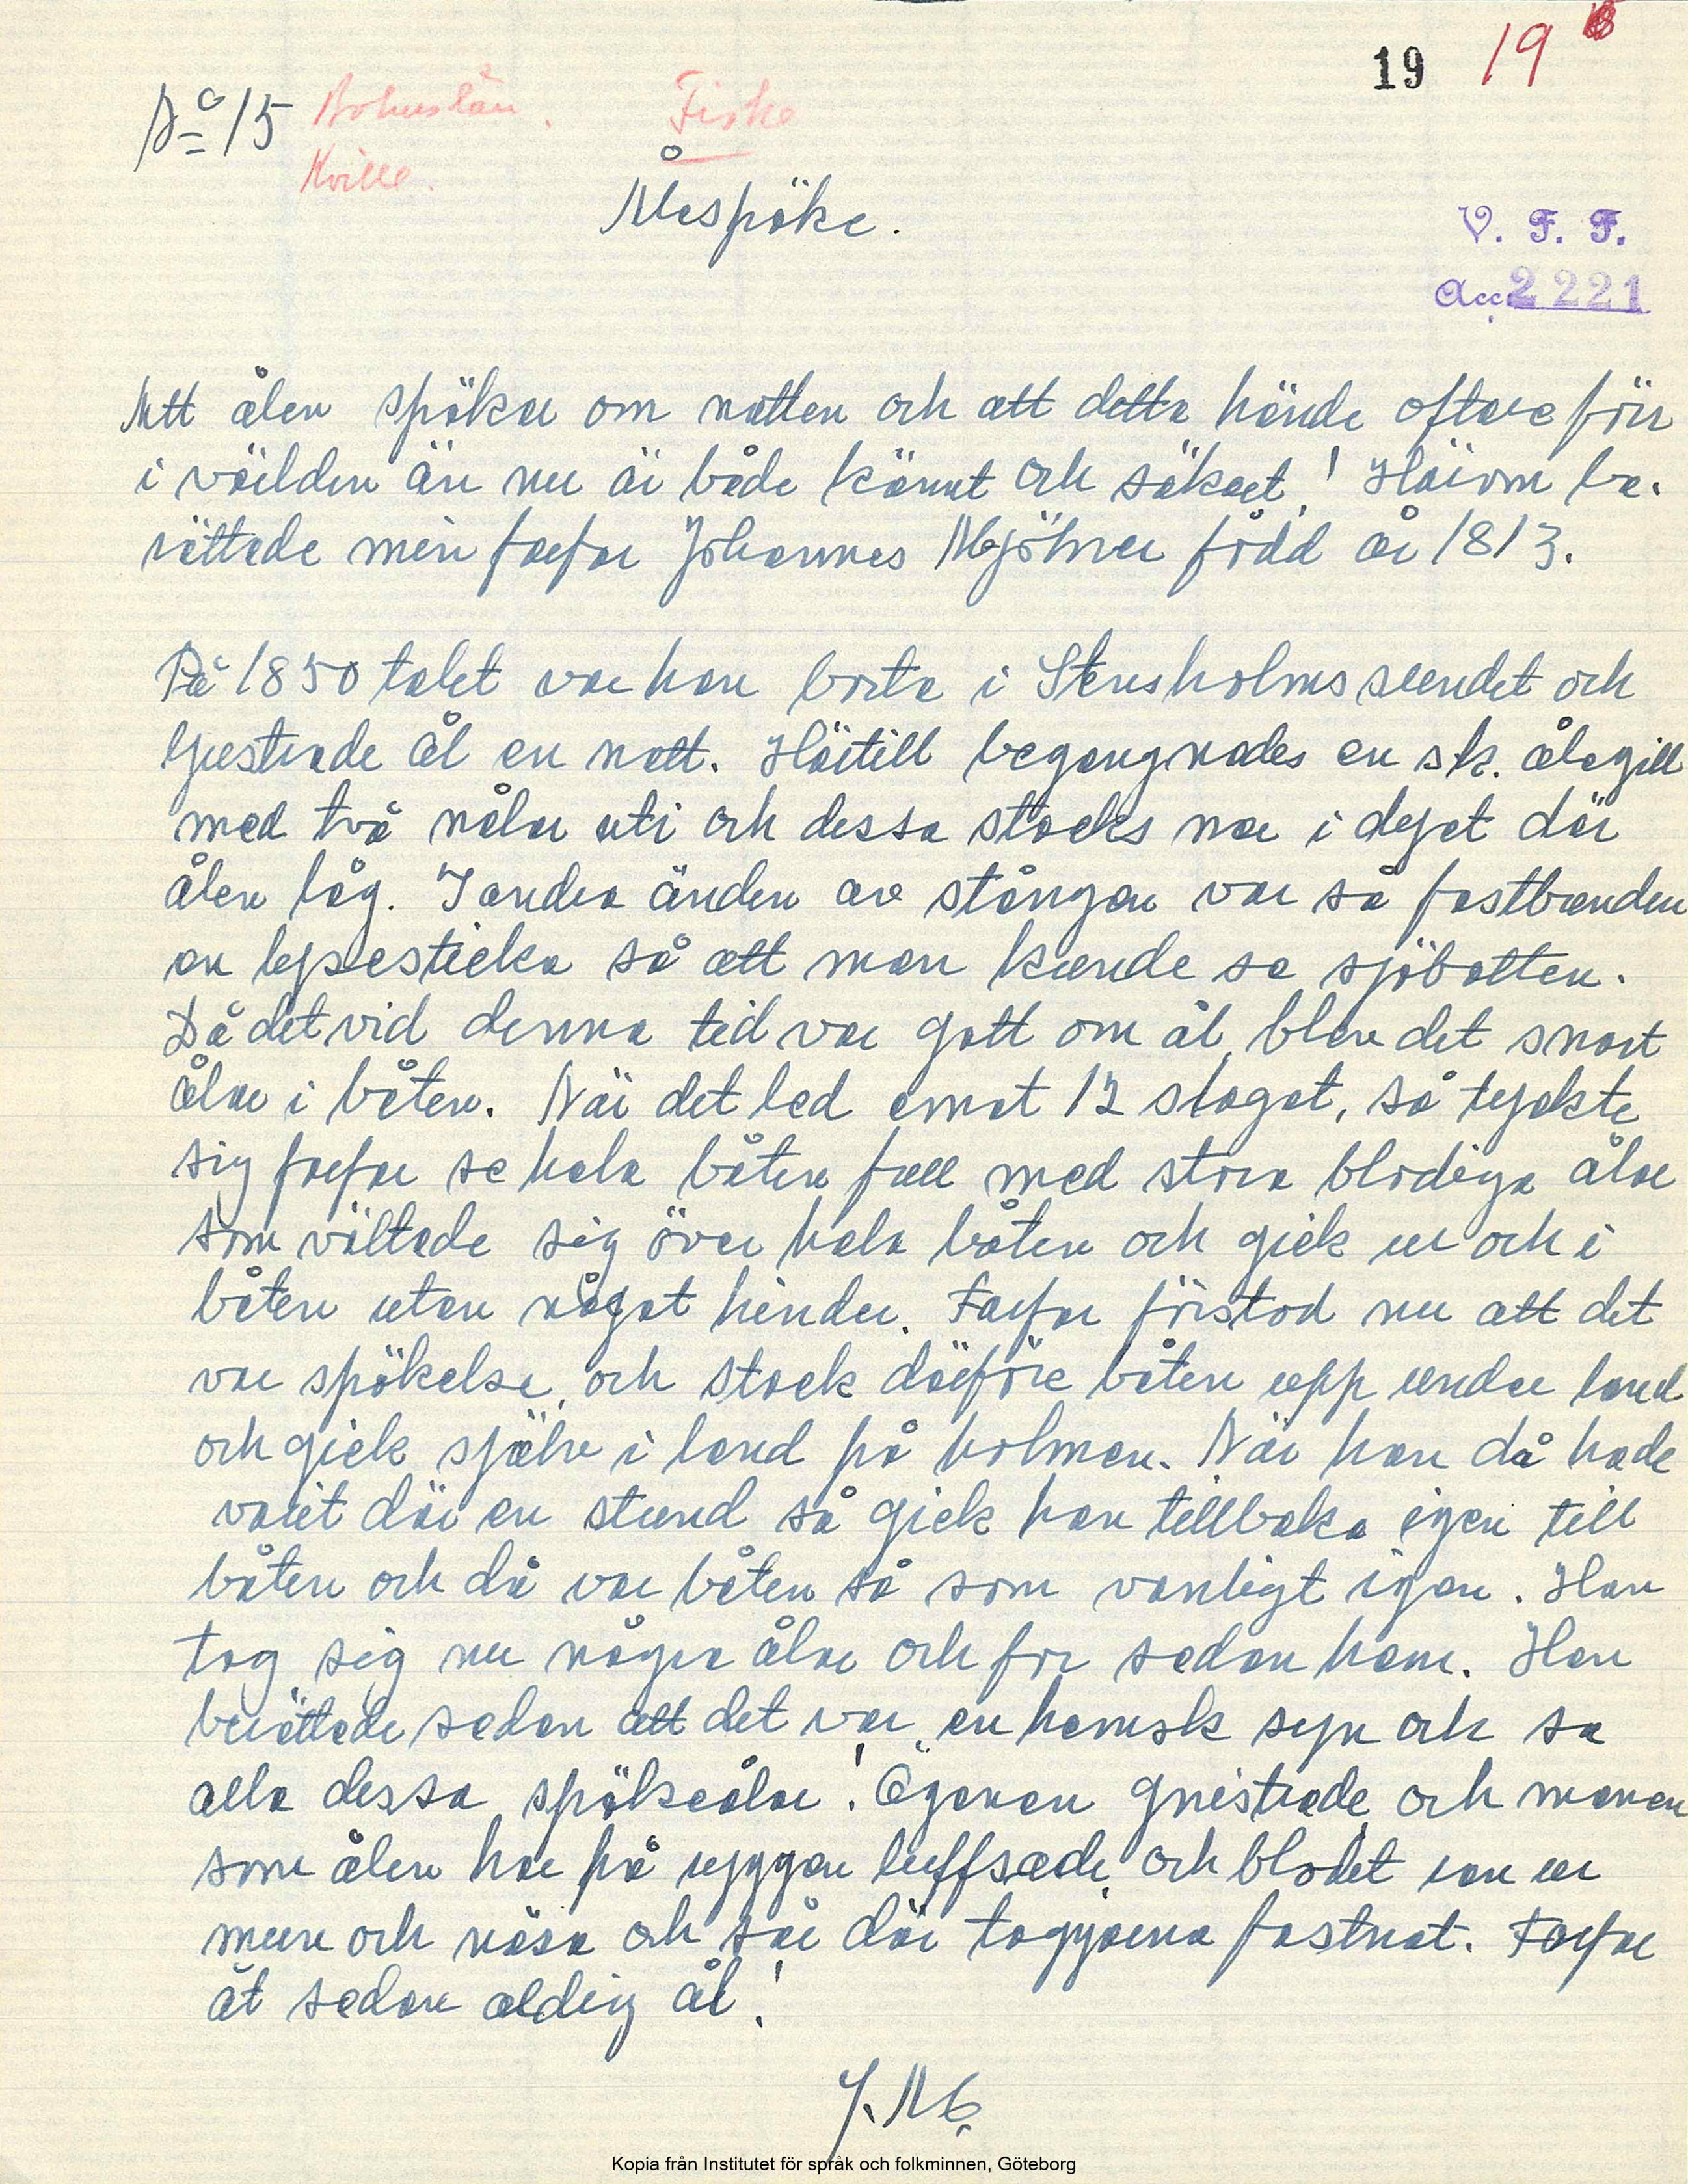 19 19
No 15 Bohuslän. Fiske
Kville.
Ålaspöke.
V. F. F.
Acc. 2221
Att ålen spökar om natten och att detta hände oftare förr
i världen än nu är både kännt och säkert! Härom be-
rättade min farfar Johannes född år 1813.
På 1850 talet var han borta i Stensholmssundet och
ljustrade ål en natt. Härtill begangnades en sk. ålagill
med två nålar uti och dessa stacks ner i dyet där
ålen låg. I andra änden av stången var så fastbunden
en lysesticka så att man kunde se sjöbotten.
Då det vid denna tid var gott om ål, blev det snart
ålar i båten. När det led emot 12 slaget, så tyckte
sig farfar se hela båten full med stora blodiga ålar
som vältade sig över hela båten och gick ur och i
båten utan något hinder. Farfar förstod nu att det
var spökelse, och stack därföre båten upp under land
och gick själv i land på holmen. När han då hade
varit där en stund så gick han tillbaka igen till
båten och då var båten så som vanligt igen. Han
tog sig nu några ålar och for sedan hem. Han
berättade sedan att det var en hemsk syn och se
alla dessa spökeålar! Ögonen gnistrade och manen
som ålen har på ryggen luffsade, och blodet ran ur
mun och näsa och sår där taggarna fastnat. Farfar
åt sedan aldrig ål!
Kopia från Institutet för språk och folkminnen, Göteborg